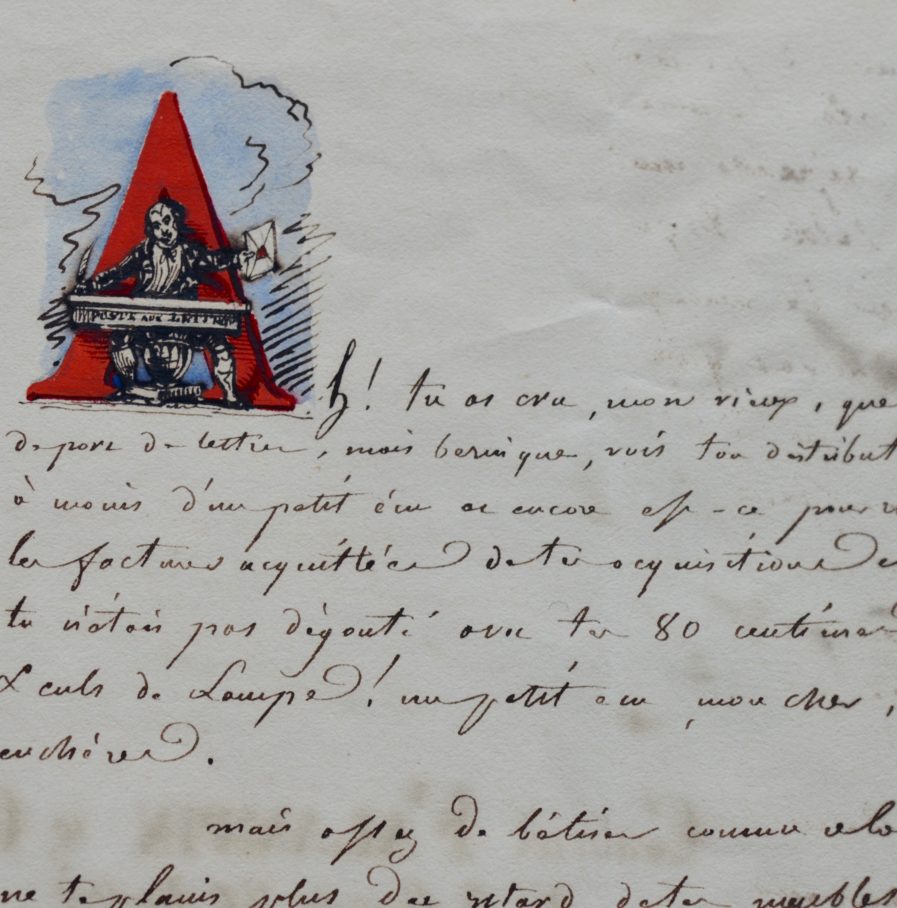 POSTE AUX LETTRES
Ah! tu as cru, mon vieux, que
de port de lettre, mais bernique, vois ton distribut
à moins d'un petit écu et encore est-ce pour
les factures acquittées de tes acquisitions
tu n'étais pas dégouté avec tes 80 centimes
culs de Lampe! un petit écu mon cher,
enchères.
mais assez de bêtises comme cela
te plains plus du retard de tes meubles